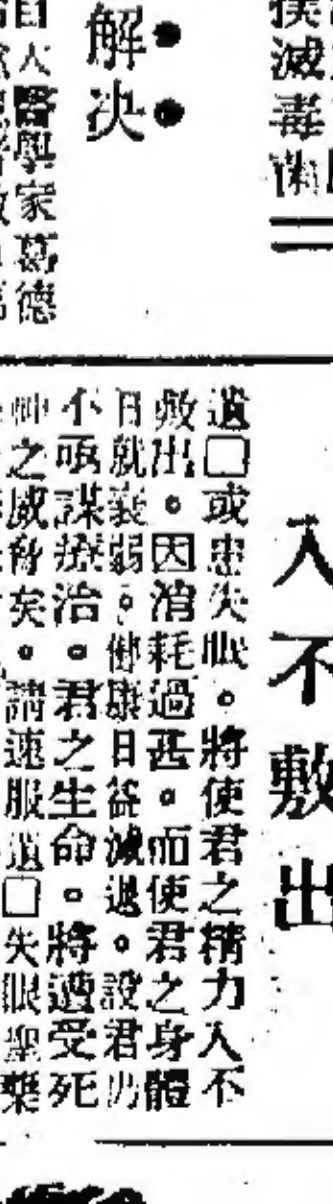 撲滅毒菌
解决
大醫學家葛德
入不敷出
遺□或患失眠。將使君之精力入不
敷出。因消耗過甚。而使君之身體
日就衰弱。健康日益減退。設君仍
不亟謀療治。君之生命。將遭受死
神之威脅矣。請速服遺□失眠聖藥